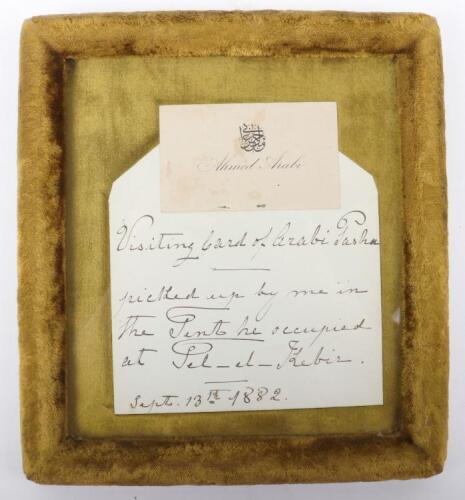 Ahmed Arabi
Visiting Card of Arabi Pasha
picked up by me in
the Tent he occupied
at Tel-el-Kebir.
Sept. 13th 1882.